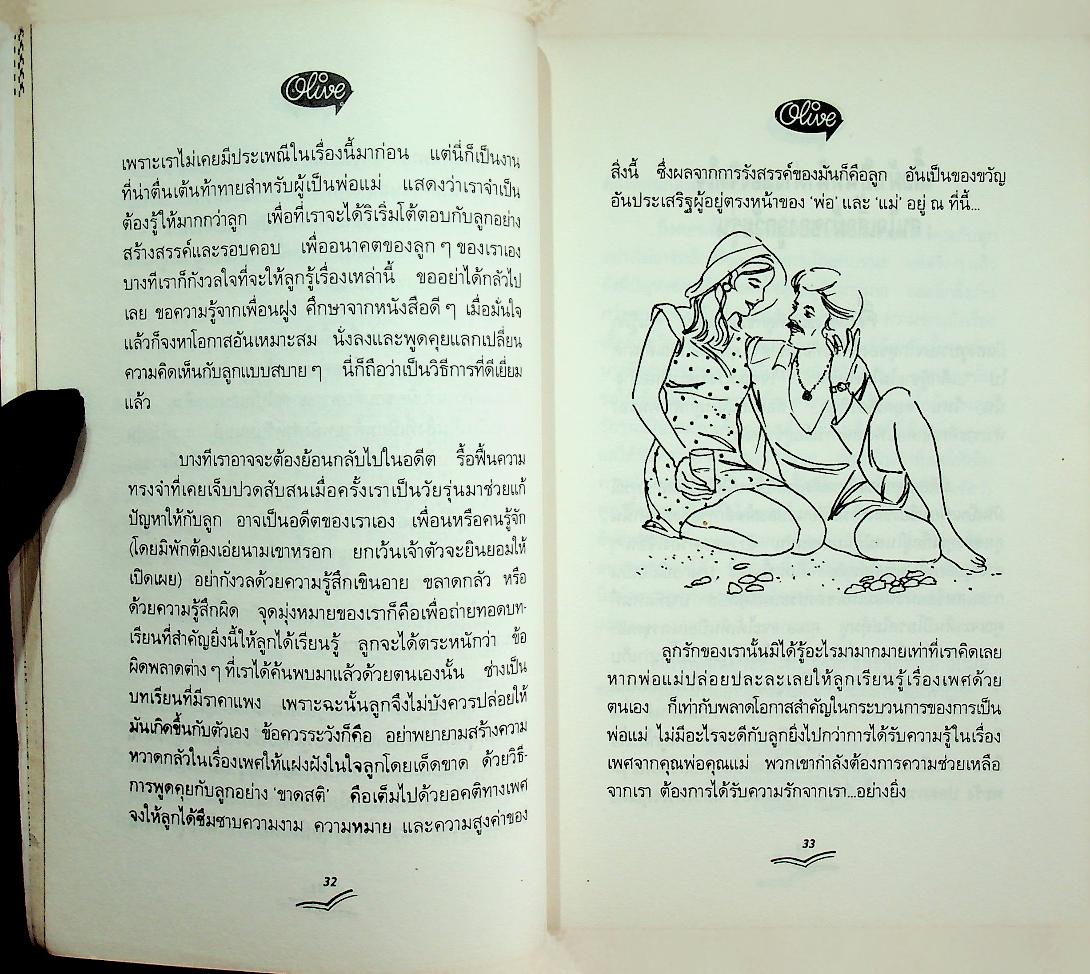 Olive
เพราะเราไม่เคยมีประเพณีในเรื่องนี้มาก่อน แต่นี่ก็เป็นงาน
ที่น่าตื่นเต้นท้าทายสำหรับผู้เป็นพ่อแม่ แสดงว่าเราจำเป็น
ต้องรู้ให้มากกว่าลูก เพื่อที่เราจะได้ริเริ่มโต้ตอบกับลูกอย่าง
สร้างสรรค์และรอบคอบ เพื่ออนาคตของลูก ๆ ของเราเอง
บางทีเราก็กังวลใจที่จะให้ลูกรู้เรื่องเหล่านี้ ขออย่าได้กลัวไป
เลย ขอความรู้จากเพื่อนฝูง ศึกษาจากหนังสือดี ๆ เมื่อมั่นใจ
แล้วก็จงหาโอกาสอันเหมาะสม นั่งลงและพูดคุยแลกเปลี่ยน
ความคิดเห็นกับลูกแบบสบาย ๆ นี่ก็ถือว่าเป็นวิธีการที่ดีเยี่ยม
แล้ว
บางทีเราอาจจะต้องย้อนกลับไปในอดีต รื้อฟื้นความ
ทรงจำที่เคยเจ็บปวดสับสนเมื่อครั้งเราเป็นวัยรุ่นมาช่วยแก้
ปัญหาให้กับลูก อาจเป็นอดีตของเราเอง เพื่อนหรือคนรู้จัก
(โดยมิพักต้องเอ่ยนามเขาหรอก ยกเว้นเจ้าตัวจะยินยอมให้
เปิดเผย) อย่ากังวลด้วยความรู้สึกเขินอาย ขลาดกลัว หรือ
ด้วยความรู้สึกผิด จุดมุ่งหมายของเราก็คือเพื่อถ่ายทอดบท-
เรียนที่สำคัญยิ่งนี้ให้ลูกได้เรียนรู้ ลูกจะได้ตระหนักว่า ข้อ
ผิดพลาดต่าง ๆ ที่เราได้ค้นพบมาแล้วด้วยตนเองนั้น ช่างเป็น
บทเรียนที่มีราคาแพง เพราะฉะนั้นลูกจึงไม่บังควรปล่อยให้
มันเกิดขึ้นกับตัวเอง ข้อควรระวังก็คือ อย่าพยายามสร้างความ
หวาดกลัวในเรื่องเพศให้แฝงฝังในใจลูกโดยเด็ดขาด ด้วยวิธี-
การพูดคุยกับลูกอย่าง 'ขาดสติ' คือเต็มไปด้วยอคติทางเพศ
จงให้ลูกได้ซึมซาบความงาม ความหมาย และความสูงค่าของ
32
Olive
สิ่งนี้ ซึ่งผลจากการรังสรรค์ของมันก็คือลูก อันเป็นของขวัญ
อันประเสริฐผู้อยู่ตรงหน้าของ 'พ่อ' และ 'แม่' อยู่ ณ ที่นี้...
ลูกรักของเรานั้นมิได้รู้อะไรมามากมายเท่าที่เราคิดเลย
หากพ่อแม่ปล่อยปละละเลยให้ลูกเรียนรู้เรื่องเพศด้วย
ตนเอง ก็เท่ากับพลาดโอกาสสำคัญในกระบวนการของการเป็น
พ่อแม่ ไม่มีอะไรจะดีกับลูกยิ่งไปกว่าการได้รับความรู้ในเรื่อง
เพศจากคุณพ่อคุณแม่ พวกเขากำลังต้องการความช่วยเหลือ
จากเรา ต้องการได้รับความรักจากเรา...อย่างยิ่ง
33